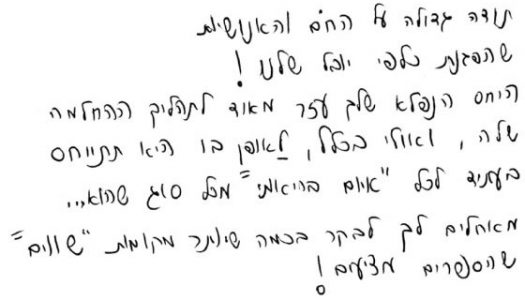 תודה גדולה על החום והאנושיות
שהפגנת כלפי יובל שלנו!
היחס הנפלא שלך עזר מאוד לתהליך ההחלמה
שלה, ואולי בכלל, לאופן בו היא תתייחס
בעתיד לכל "איום בריאותי" מכל סוג שהוא...
מאחלים לך לבקר בכמה שיותר מקומות "שווים"
שהספרים מציעים!